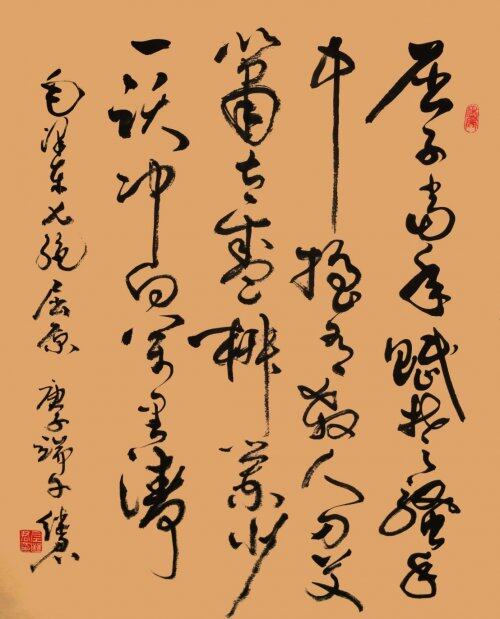 屈子当年赋楚骚手
中握有杀人刀艾
萧太盛椒兰少
一跃冲向万里涛
毛泽东七绝屈原 庚子端午